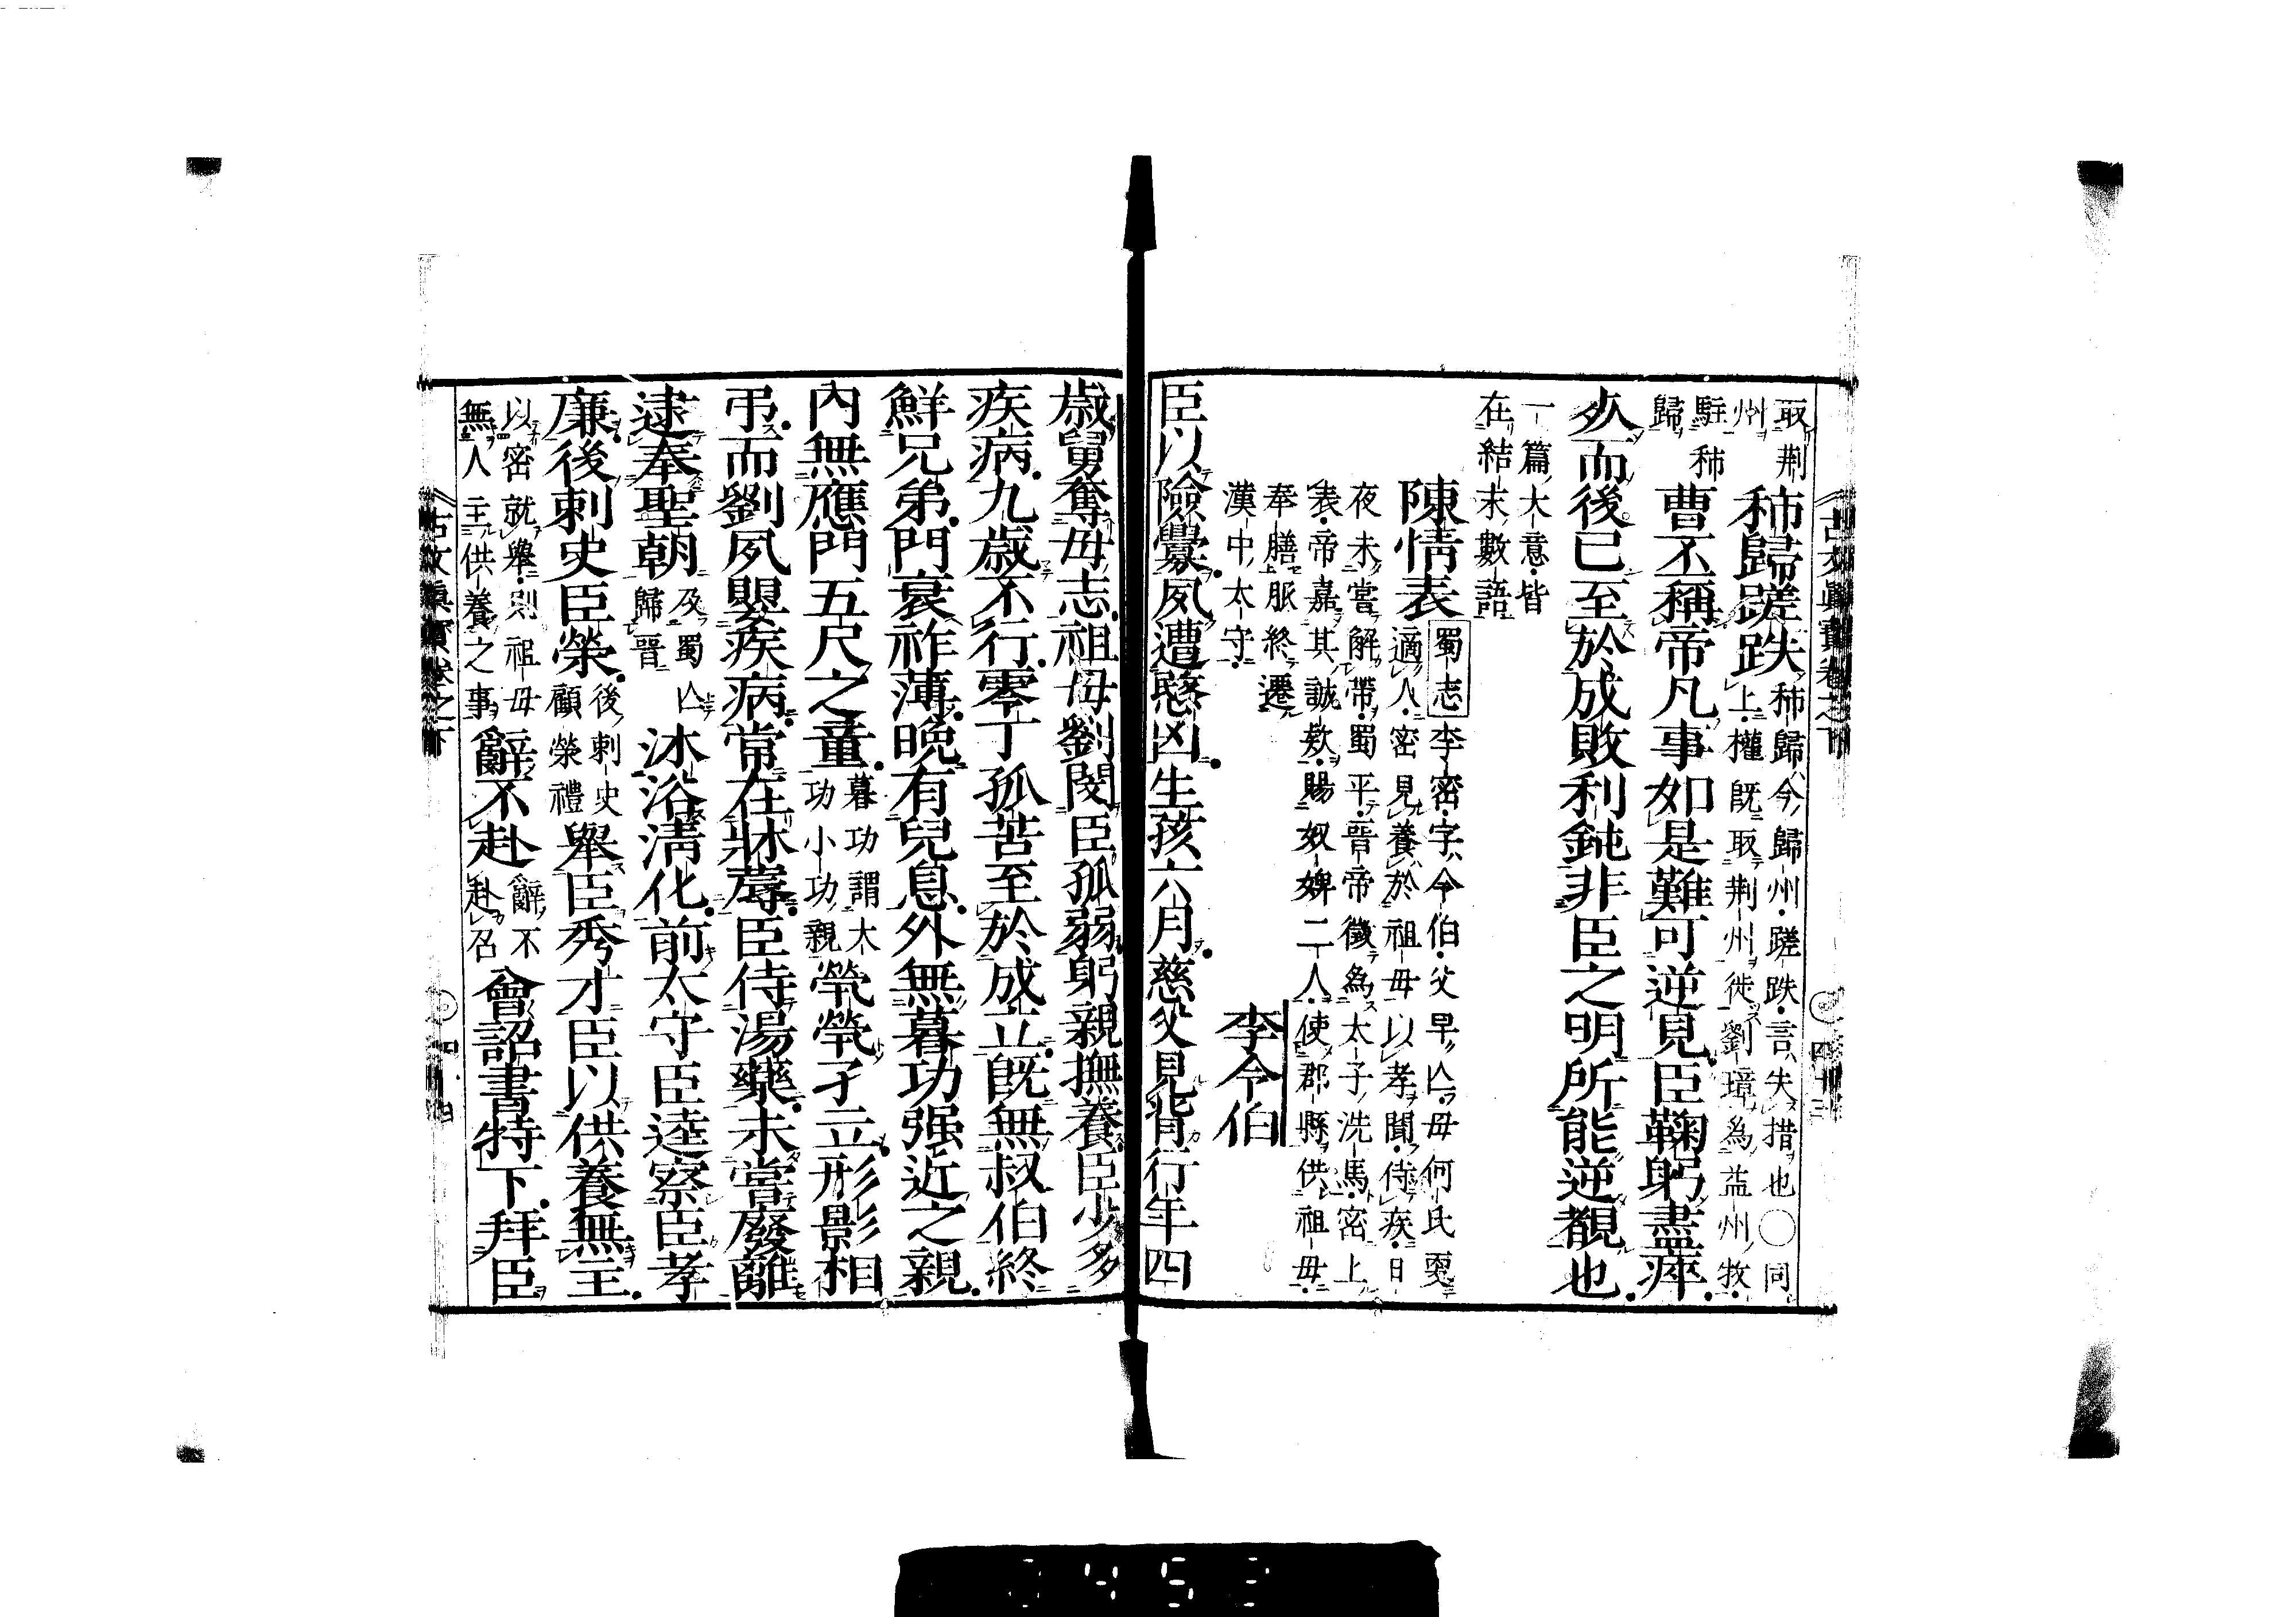 古文眞寶卷之下 四十三
取荊州
駐秭歸
秭歸蹉跌秭歸今歸州蹉跌言失措也〇同上權既取荊州徙劉璋為益州牧
曹丕稱帝凡事如是難可逆見臣鞠躬盡瘁
死而後已至於成敗利鈍非臣之明所能逆覩也
一篇大意皆在結末數語
陳情表蜀志李密字令伯父早亡母何氏更
適人密見養於祖母以孝聞侍疾日
夜未嘗解帶蜀平晉帝徵為太子洗馬密上
表帝嘉其誠欵賜奴婢二人使郡縣供祖母
奉膳服終遷
漢中太守
李令伯
臣以險釁夙遭愍凶生孩六月慈父見背行年四
歲舅奪母志祖母劉閔臣孤弱躬親撫養臣少多
疾病九歲不行零丁孤苦至於成立既無叔伯終
鮮兄弟門衰祚薄晚有兒息外無朞功强近之親
內無應門五尺之童朞功謂大功小功親煢煢孑立形影相
弔而劉夙嬰疾病常在牀蓐臣侍湯藥未嘗廢離
逮奉聖朝及蜀亡歸晉沐浴淸化前太守臣逵察臣孝
廉後刺史臣榮後刺史顧榮禮舉臣秀才臣以供養無主
以密就舉則祖母無人主供養之事辭不赴辭不赴召會詔書特下拜臣
古文眞寶卷之下 四十四